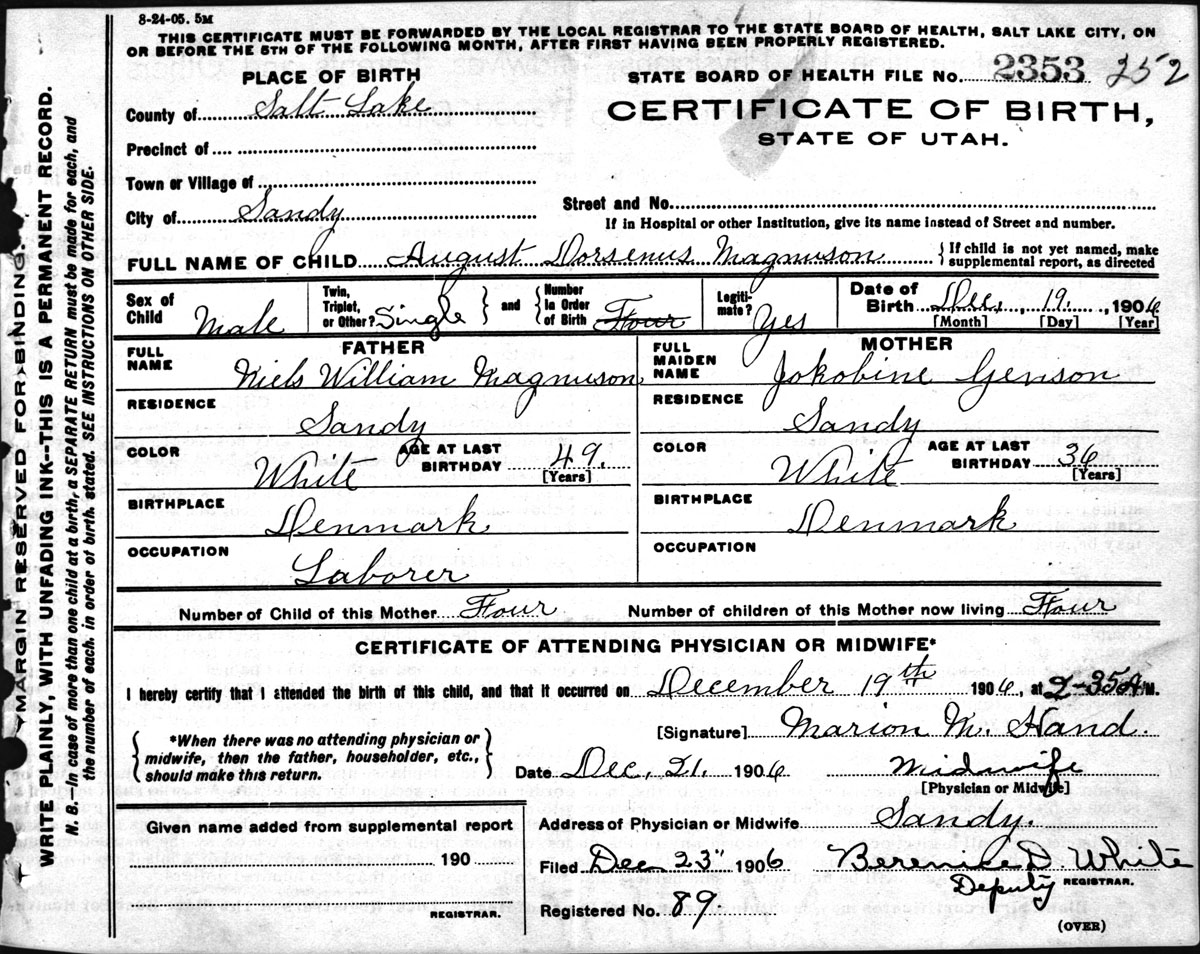 8-24-05. 5M
THIS CERTIFICATE MUST BE FORWARDED BY THE LOCAL REGISTRAR TO THE STATE BOARD OF HEALTH, SALT LAKE CITY, ON
OR BEFORE THE 5TH OF THE FOLLOWING MONTH, AFTER FIRST HAVING BEEN PROPERLY REGISTERED.
PLACE OF BIRTH
STATE BOARD OF HEALTH FILE No. 2353 252
County of Salt Lake
CERTIFICATE OF BIRTH,
STATE OF UTAH.
Precinct of
Town or Village of
City of Sandy
Street and No.
If in Hospital or other Institution, give its name instead of Street and number.
FULL NAME OF CHILD August Dorsenus Magnuson { If child is not yet named, make supplemental report, as directed
Sex of Child Male
Twin, Triplet, or Other? Single } and { Number in Order of Birth Four
Legitimate? Yes
Date of Birth Dec. 19. 1906
[Month] [Day] [Year]
FATHER
FULL NAME Niels William Magnuson
RESIDENCE Sandy
COLOR White AGE AT LAST BIRTHDAY 49. [Years]
BIRTHPLACE Denmark
OCCUPATION Laborer
MOTHER
FULL MAIDEN NAME Jokobine Genson
RESIDENCE Sandy
COLOR White AGE AT LAST BIRTHDAY 36 [Years]
BIRTHPLACE Denmark
OCCUPATION
Number of Child of this Mother Four Number of children of this Mother now living Four
CERTIFICATE OF ATTENDING PHYSICIAN OR MIDWIFE*
I hereby certify that I attended the birth of this child, and that it occurred on December 19th 1906, at 2-35 A M.
{ *When there was no attending physician or midwife, then the father, householder, etc., should make this return. }
[Signature] Marion M. Hand.
Date Dec. 21. 1906 Midwife
[Physician or Midwife]
Given name added from supplemental report
190
REGISTRAR.
Address of Physician or Midwife Sandy.
Filed Dec 23" 1906 Berenice D. White
Deputy REGISTRAR.
Registered No. 89
(OVER)
MARGIN RESERVED FOR BINDING.
WRITE PLAINLY, WITH UNFADING INK--THIS IS A PERMANENT RECORD.
N. B.—In case of more than one child at a birth, a SEPARATE RETURN must be made for each, and
the number of each, in order of birth, stated. SEE INSTRUCTIONS ON OTHER SIDE.